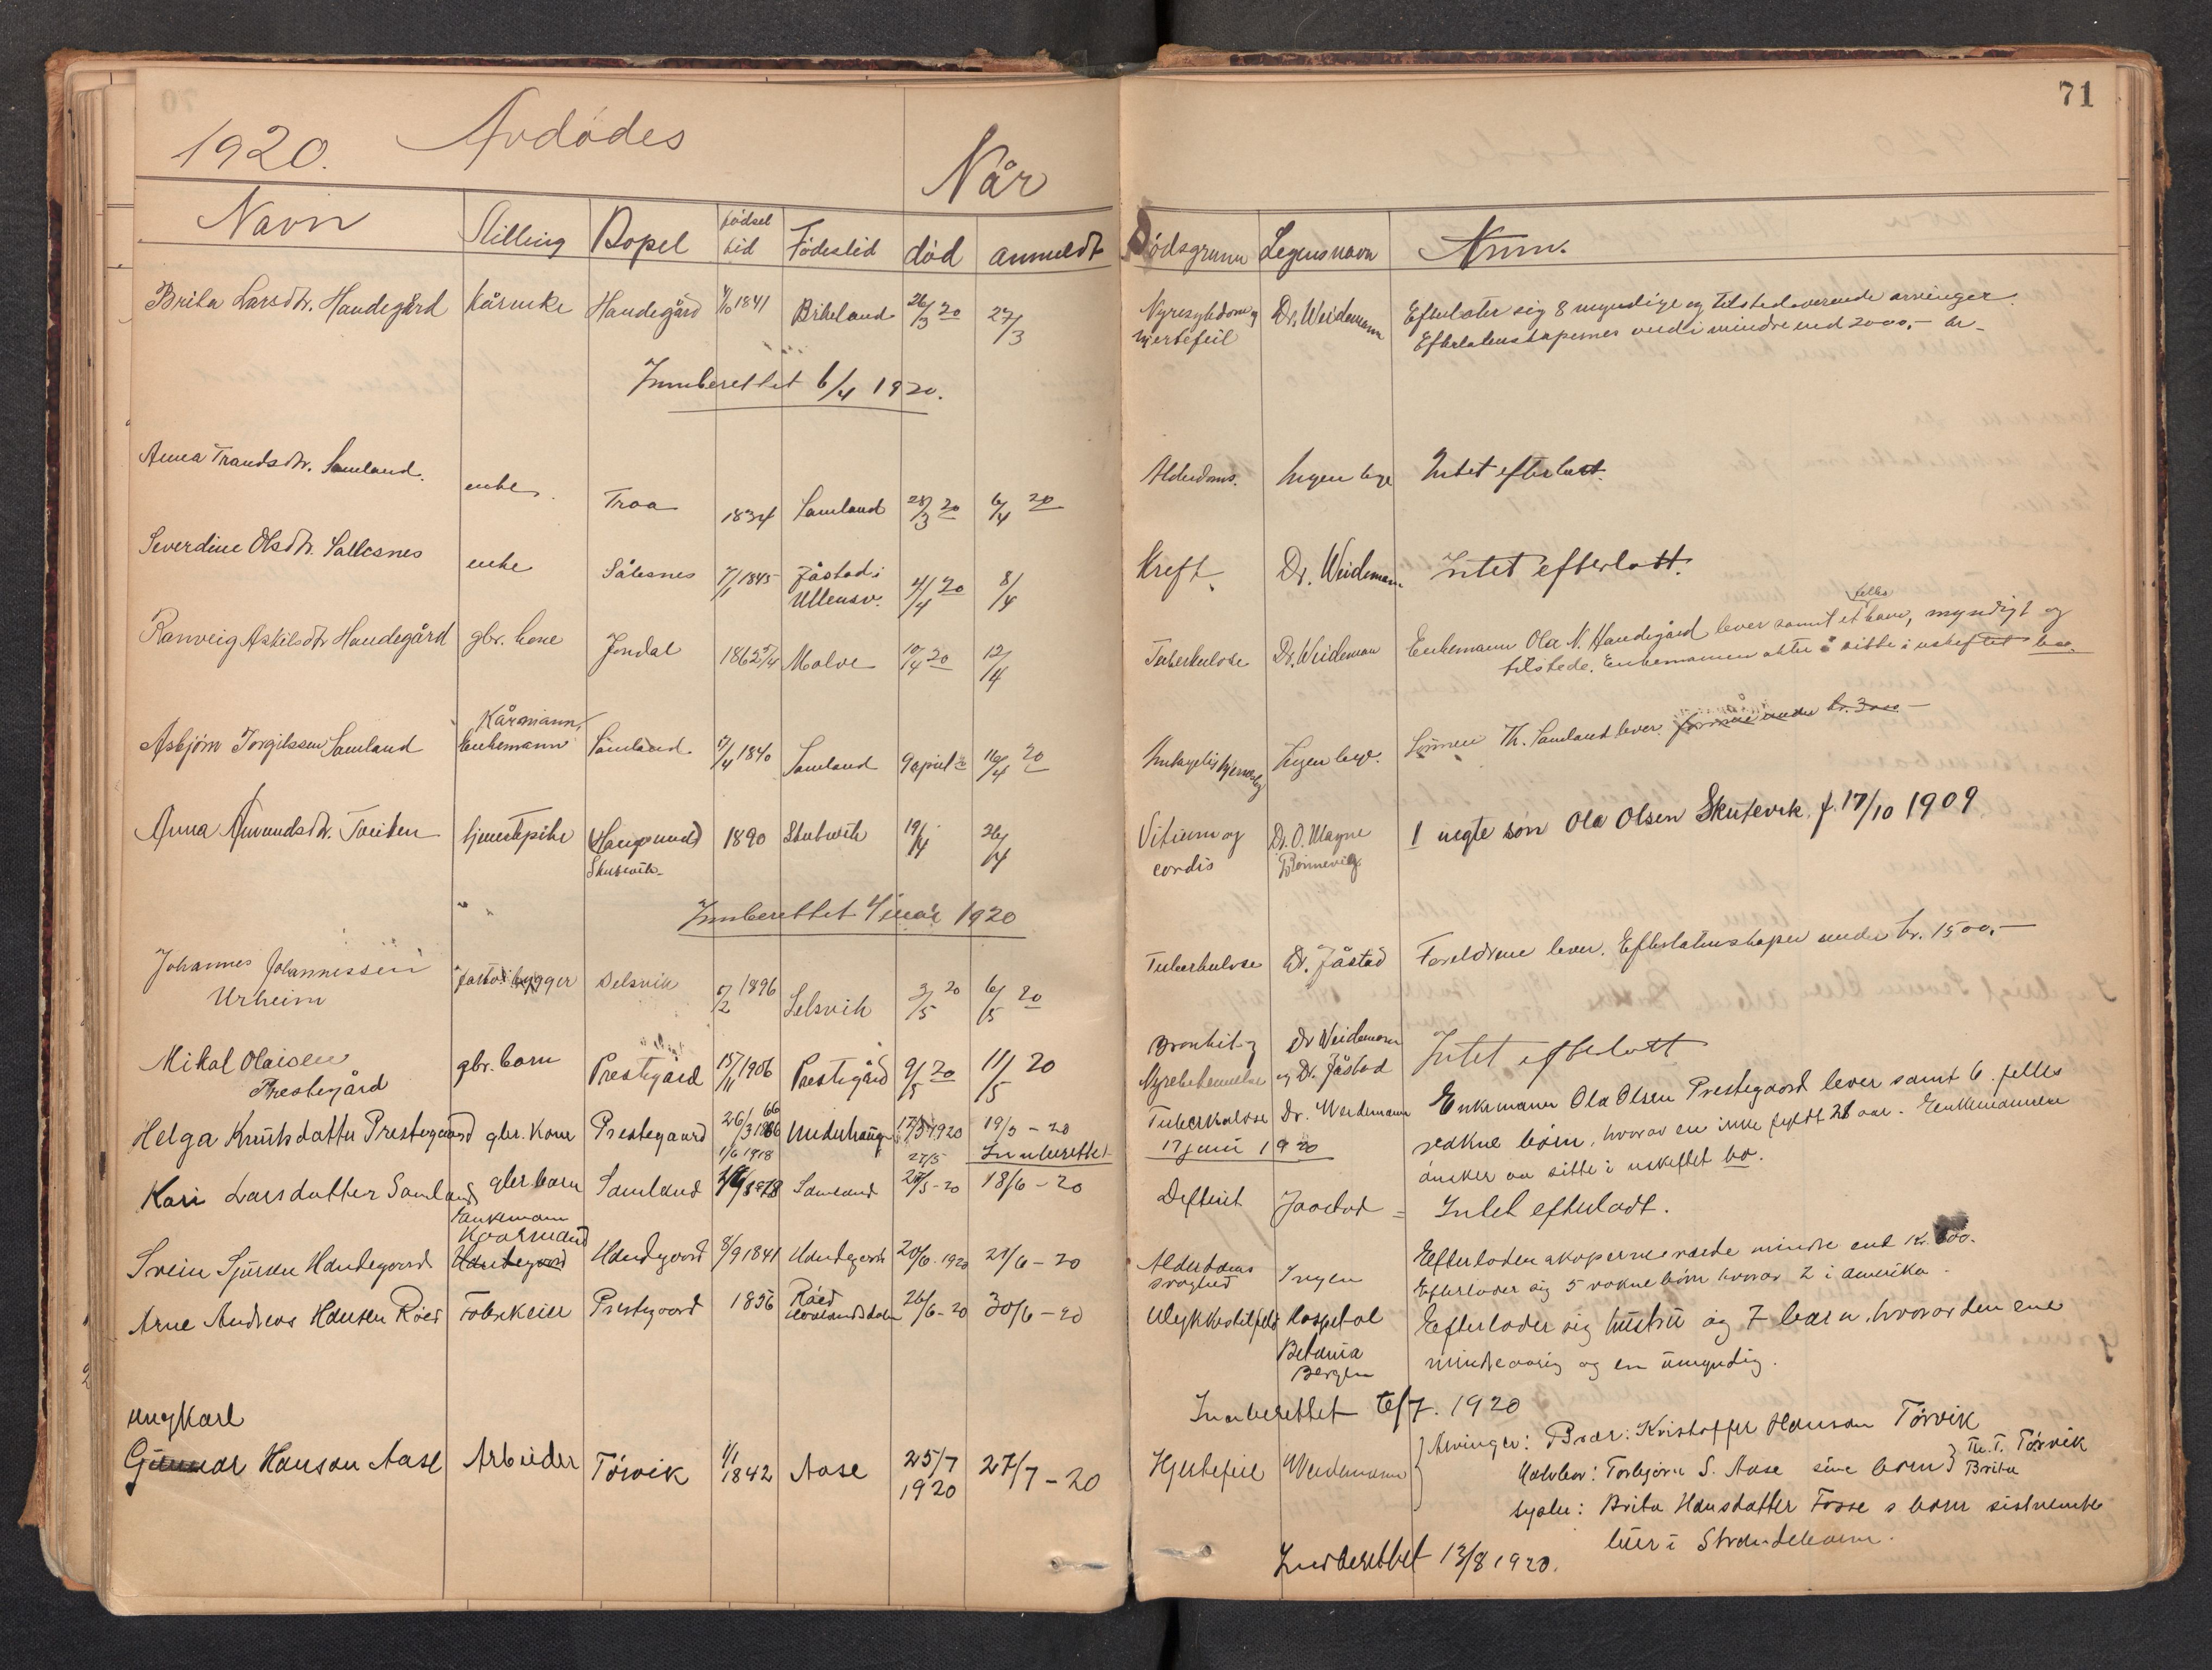 71
1920. Avdödes
Når
Navn Stilling Bopel födsel tid Födested död anmeldt Dödsgrunn Legens navn Anm.
Brita Larsdtr. Handegård Kårenke Handegård 4/10 1841 Birkeland 26/3 20 27/3 Nyresykdom og Dr. Weidemann Efterlater sig 8 myndige og tilstedeverende arvinger.
hjertefeil Efterlatenskapernes verdi mindre end 2000,- kr -
Innberettet 6/4 1920.
Anna Trandsdtr. Samland. enke. Troa 1834 Samland 28/3 20 6/4 20 Alderdoms. Ingen lege Intet efterlatt.
Severdine Olsdtr. Sallesnes enke Sålesnes 7/1 1845 Jåstad i 4/4 20 8/4 Kreft Dr. Weidemann Intet efterlatt.
Ullensv.
Ranveig Askilsdtr Handegård gbr. kone Jondal 1862 Malve 10/4 20 12/4 Tuberkulose Dr. Weidemann Enkemann Ola N. Handegård lever samt et felles barn, myndigt og
tilstede. Enkemannen akter å sitte i uskiftet bo.
Kårmann,
Asbjörn Torgilssen Samland Enkemann Samland 1840 Samland 9 april 16/4 20 Ingen lege. Sönnen Th. Samland lever. formue under kr. 3000 -
Anna Amundsdtr. Tveiten tjenestpike Haugesund 1890 Skutevik 19/4 26/4 Vitium og Dr. O. Magne 1 uegte sön Ola Olsen Skutevik, f. 17/10 1909
Skutevik cordis Bonnevig
Innberettet 4 mai 1920
Johannes Johannessen bygger Selsvik 1896 Selsvik 3/5 20 6/5 20 Tuberkulose Dr. Jåstad Foreldrene lever. Efterlatenskaper under kr. 1500,-
Urheim
Mikal Olaisen gbr. barn Prestegård 15/11 1906 Prestegård 9/5 20 11/5 20 Bronkit og Dr Weidemann Intet efterlatt
Prestegård Nyrebetennelse og Dr. Jåstad
Helga Knutsdatter Prestegaard gbr. kone Prestegaard 26/3 1866 Underhaug 17/5 1920 19/5 - 20 Tuberkulose Dr. Weidemann Enkemann Ola Olsen Prestegaard lever samt 6 felles
Innberettet 17 juni 1920 vokne börn, hvorav en ikke fyldt 21 aar. Enkemannen
önsker aa sitte i uskiftet bo.
Kari Larsdatter Samland gbr barn Samland 1/6 1918 Samland 27/5 - 20 18/6 - 20 Difterit Jaastad Intet efterladt.
Enkemann
Kaarmand
Svein Sjursen Handegaard Handegaard Handegaard 8/9 1841 Handegaard 20/6 1920 21/6 - 20 Alderdoms Ingen Efterladenskaperne værde mindre end kr.
svaghed Efterlader sig 5 vokne börn hvorav 2 i Amerika.
Arne Andreas Hansen Röed Fabrikeier Prestegaard 1856 Röed 26/6 - 20 30/6 - 20 Ulykkestilfeld Hospital Efterlader sig hustru og 7 barn, hvorav den ene
Betania mindreaarig og en umyndig.
Bergen
Innberettet 6/7. 1920
ungkarl
Gunnar Hansen Aase Arbeider Törvik 1/1 1842 Aase 25/7 1920 27/7 - 20 Hjertefeil Weidemann Arvinger: Bror: Kristoffer Hanson Törvik
Halvbror: Torbjörn S. Aase sine börn } Th. T. Törvik
Brita
syster: Brita Hansdatter Fosse s barn sistnemte
buer i Strandebarm.
Innberettet 13/8 1920.